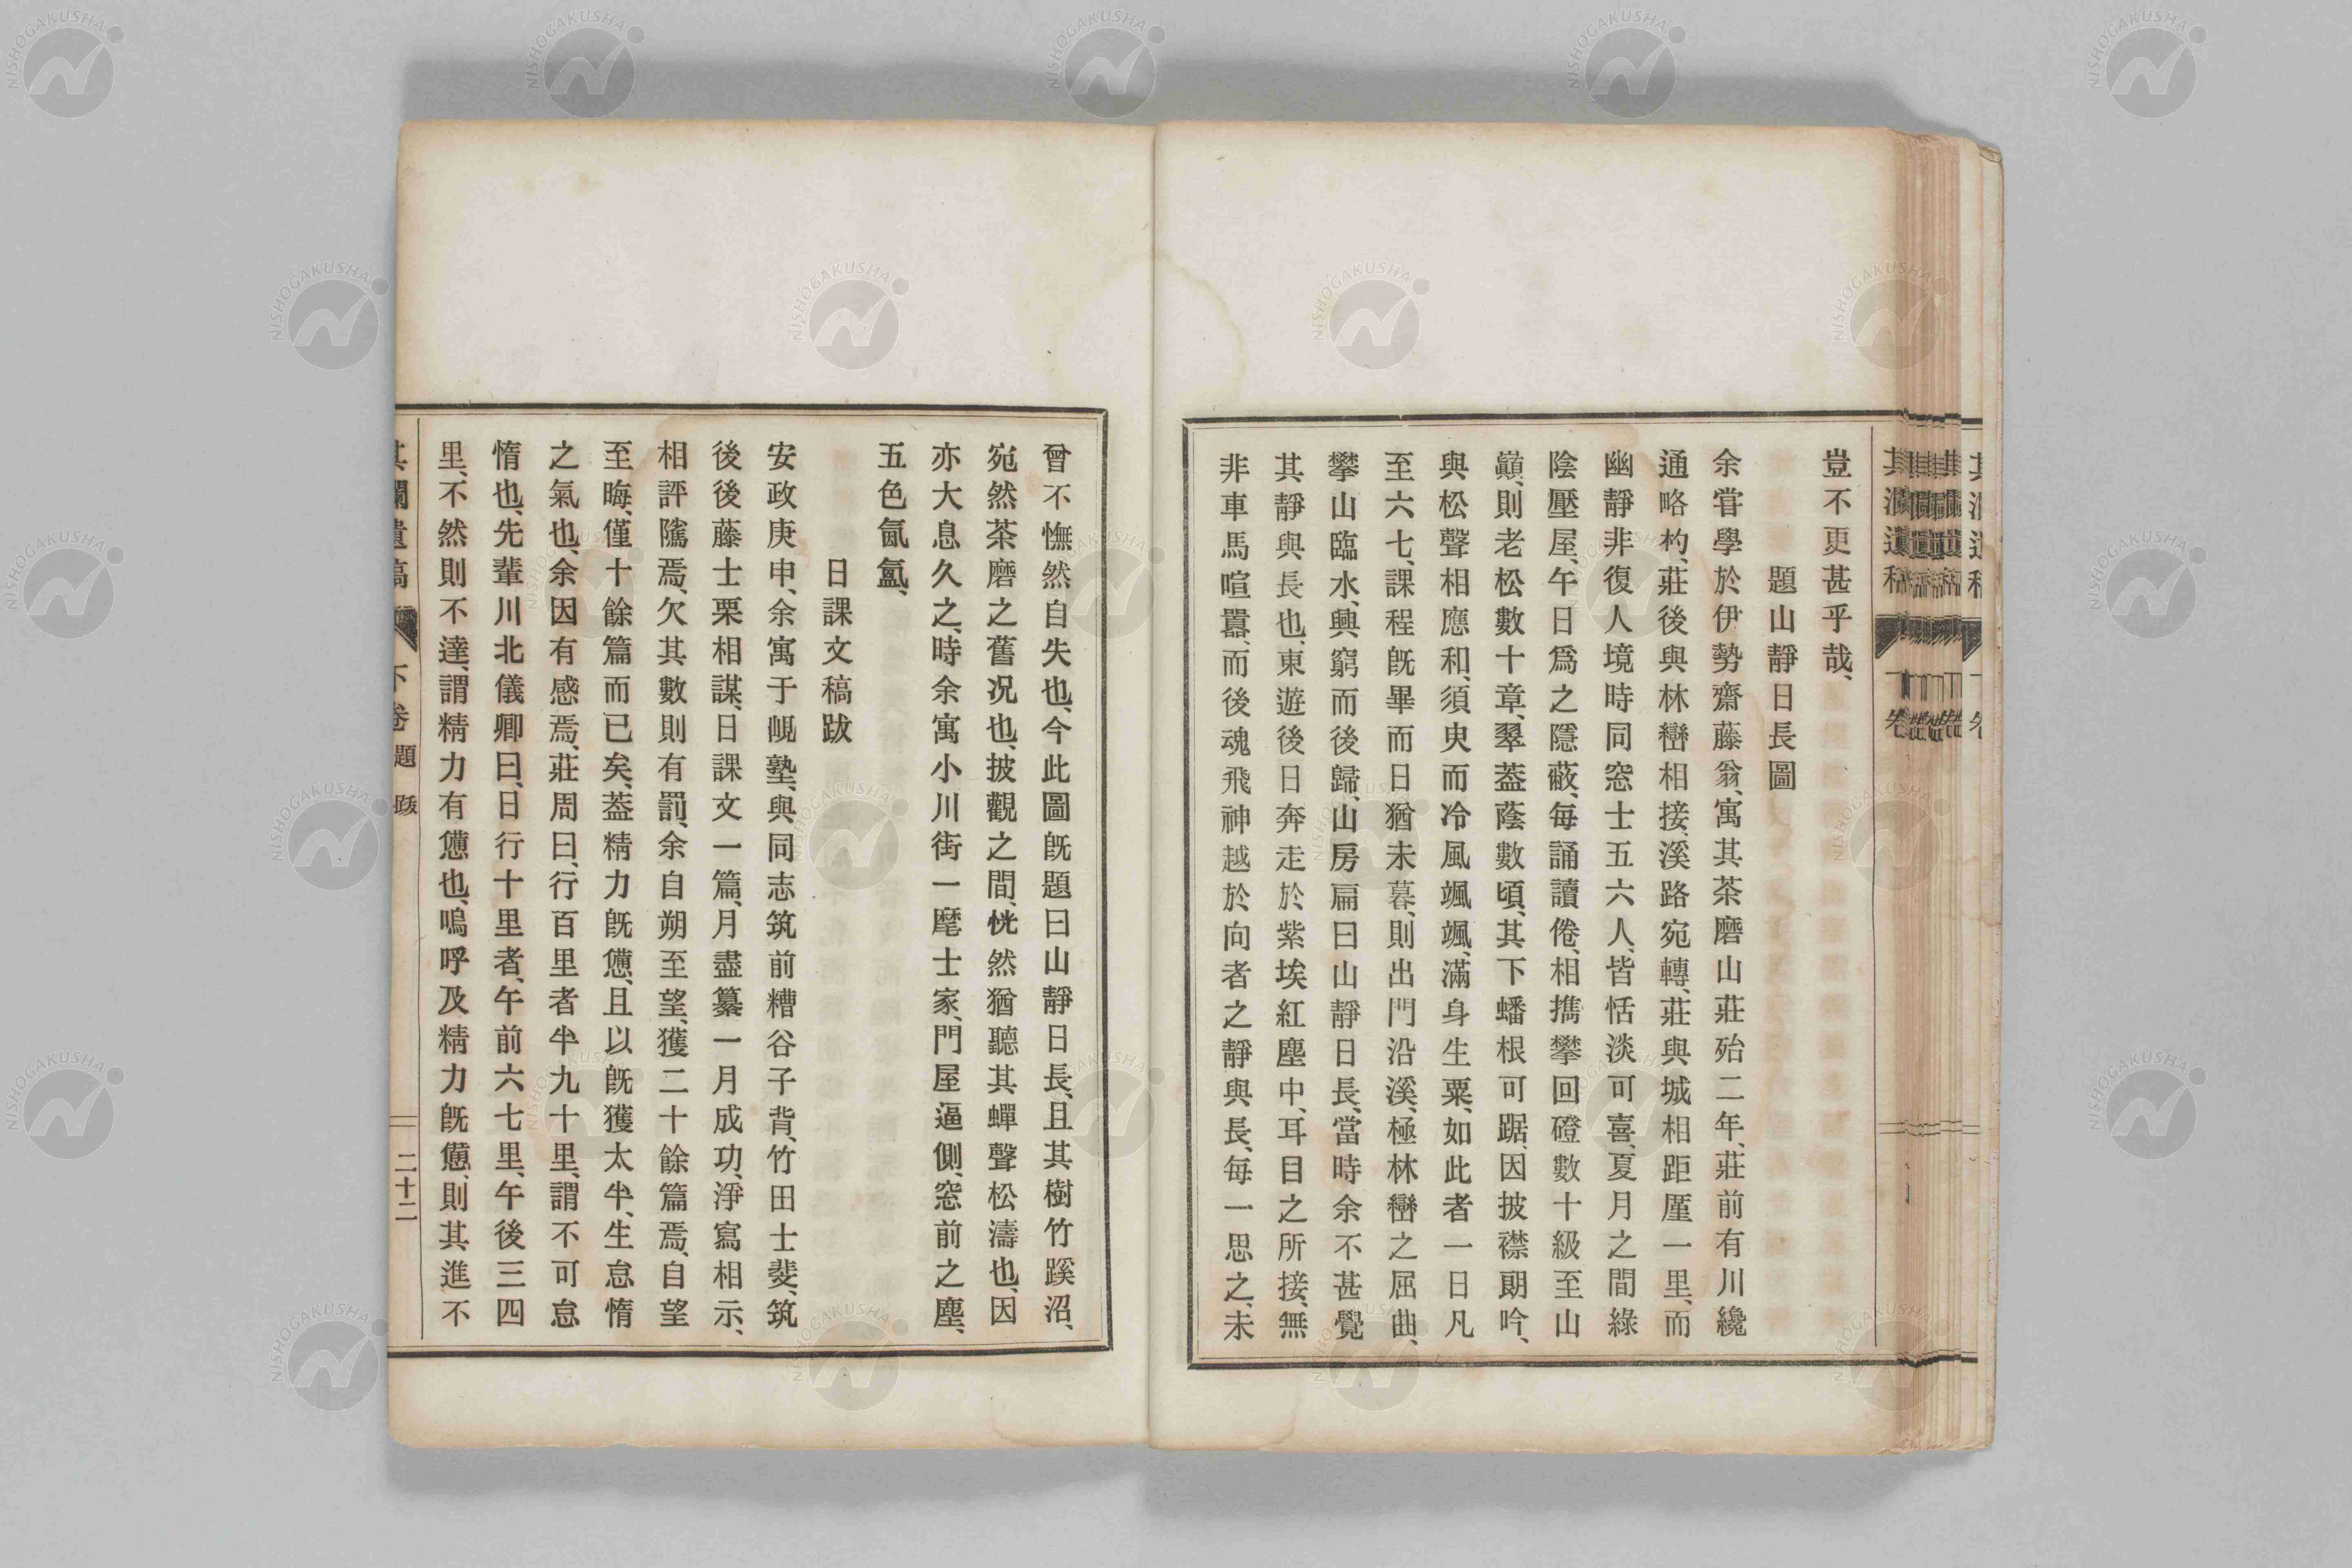 豈不更甚乎哉、
題山靜日長圖
余嘗學於伊勢齋藤翁、寓其茶磨山莊殆二年、莊前有川纔
通略杓、莊後與林巒相接、溪路宛轉、莊與城相距厪一里、而
幽靜非復人境時同窓士五六人、皆恬淡可喜、夏月之間綠
陰壓屋、午日爲之隱蔽、每誦讀倦、相携攀回磴數十級至山
巓、則老松數十章、翠葢蔭數頃、其下蟠根可踞、因披襟朗吟、
與松聲相應和、須臾而冷風颯颯、滿身生粟、如此者一日凡
至六七、課程旣畢而日猶未暮、則出門沿溪、極林巒之屈曲、
攀山臨水、興窮而後歸、山房扁曰山靜日長、當時余不甚覺
其靜與長也、東遊後日奔走於紫埃紅塵中、耳目之所接、無
非車馬喧囂、而後魂飛神越於向者之靜與長、每一思之、未
曾不憮然自失也、今此圖旣題曰山靜日長、且其樹竹蹊沼、
宛然茶磨之舊况也、披觀之間、恍然猶聽其蟬聲松濤也、因
亦大息久之、時余寓小川街一麾士家、門屋逼側、窓前之塵、
五色氤氳、
日課文稿跋
安政庚申、余寓于 塾、與同志筑前糟谷子背、竹田士斐、筑
後後藤士栗相謀、日課文一篇、月盡纂一月成功、淨寫相示、
相評隲焉、欠其數則有罰、余自朔至望、獲二十餘篇焉、自望
至晦、僅十餘篇而已矣、葢精力旣憊、且以旣獲太半、生怠惰
之氣也、余因有感焉、莊周曰、行百里者半九十里、謂不可怠
惰也、先輩川北儀卿曰、日行十里者、午前六七里、午後三四
里、不然則不達、謂精力有憊也、嗚呼及精力旣憊、則其進不
下卷 題跋 二十二